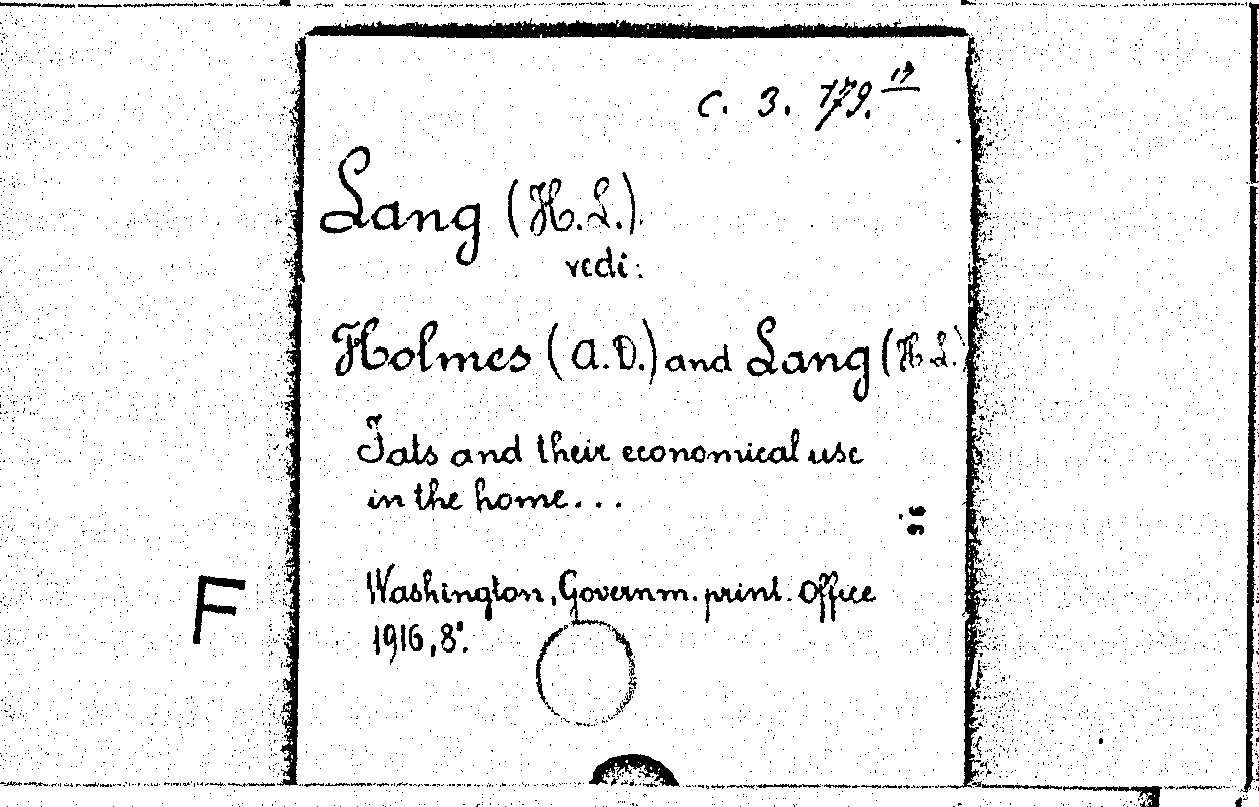 C. 3. 179.
Lang (H. L.)
vedi:
Holmes (A. D.) and Lang (H. L.)
Fats and their economical use
in the home...
Washington, Governm. print. Office
1916, 8°.
F